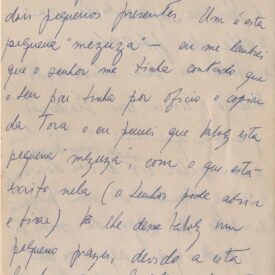 dois pequenos presentes. Um é esta
pequena "mezuza" — eu me lembrei
que o senhor me tinha contado que
o seu pai tinha por oficio o copiar
da Tora e eu pensei que talvez esta
pequena "mezuza", com o que está
escrito nela (o senhor pode abrir
e tirar) lhe desse talvez um
pequeno prazer, devido a esta